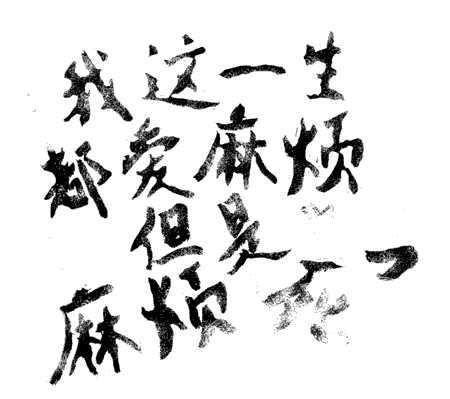 我这一生
都爱麻烦
但是
麻烦死了